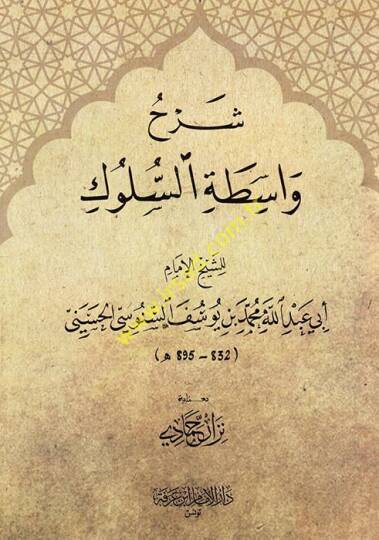 شَرْحُ
وَاسِطَةِ ٱلسُّلُوكِ
للشيخ الإمام
أَبِي عَبْدِ ٱللَّهِ مُحَمَّدِ بْنِ يُوسُفَ ٱلسَّنُوسِيِّ الحَسَنِيِّ
(832 - 895 هـ)
بعناية
نزار حمادي
دار الإمام ابن عرفة
تونس